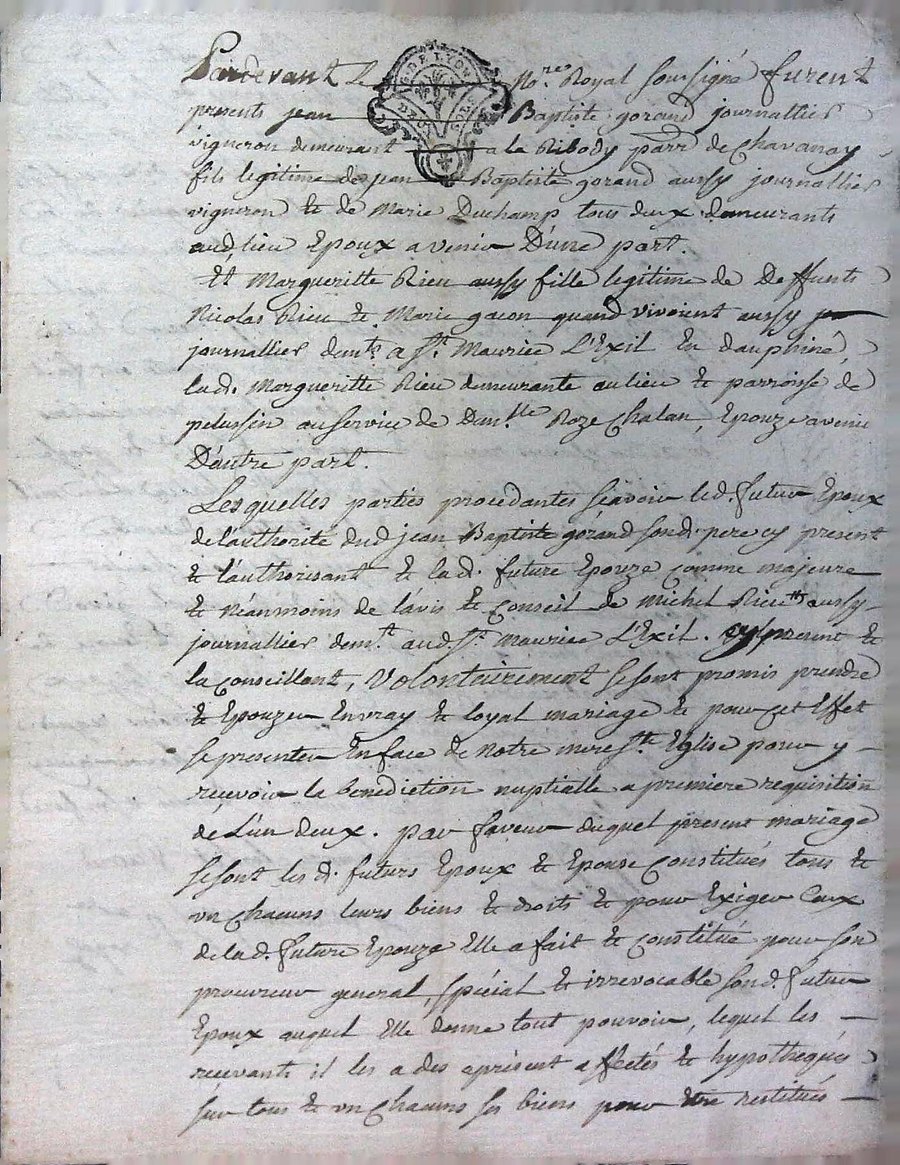 Pardevant Le No.re Royal soussigné furent
presents jean Baptiste gorand journallier
vigneron demeurant a la Ribody parr. de Chavanay
fils legitime de jean Baptiste gorand aussy journallier
vigneron & de Marie Duchamp tous deux demeurants
aud. lieu Epoux a venir D'une part.
Et Margueritte Rieu aussy fille legitime de Deffunts
Nicolas Rieu & Marie gacon quand vivoient aussy
journallier dem.ts a St. Maurice L'Exil En dauphiné,
lad. Margueritte Rieu demeurante au lieu & parroisse de
pelussin au service de Dam.lle Roze Chalan, Epouze avenir
D'autre part.
Lesquelles parties procedantes sçavoir led. futur Epoux
de l'authorité dud jean Baptiste gorand sond. pere cy present
& l'authorisant & lad. future Epouze comme majeure
& néanmoins de l'avis & Conseil de Michel Rieu aussy
journallier dem.t aud. St. Maurice L'Exil. cy present &
la conseillant, Volontairement se sont promis prendre
& Epouzer En vray & loyal mariage & pour cet Effet
se presenter En face de notre mere Ste. Eglise pour y
recevoir la benediction nuptialle a premiere requisition
de L'un deux. par faveur duquel present mariage
se sont les d. futurs Epoux & Epouse Constitués tous &
vn chacuns leurs biens & droits & pour Exiger Ceux
de lad. future Epouze Elle a fait & constitué pour son
procureur general, spécial & irrevocable sond. futur
Epoux auquel Elle donne tout pouvoir, lequel les
recevant il les a des apresent affectés & hypothequés
sur tous & vn chacuns ses biens pour Etre restitués